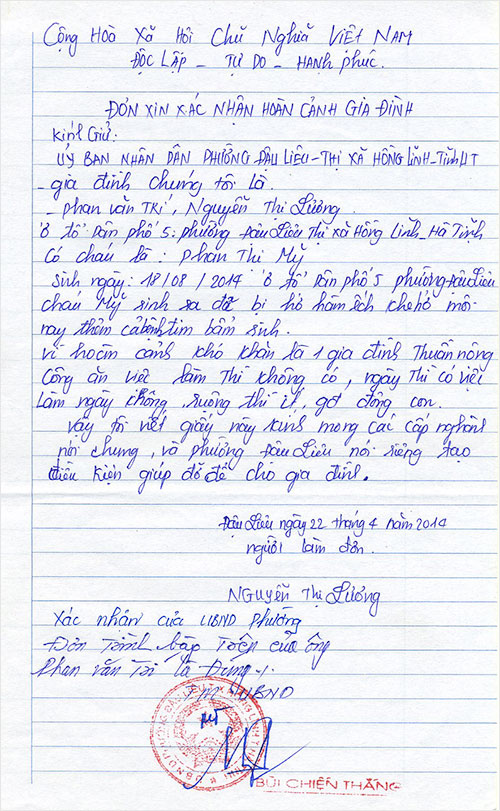 Cộng Hoà Xã Hội Chủ Nghĩa VIỆT NAM
ĐỘC LẬP - TỰ DO - HẠNH phúc.
ĐƠN XIN XÁC NHẬN HOÀN CẢNH GIA ĐÌNH
Kính Giử:
ỦY BAN NHÂN DÂN PHƯỜNG ĐẬU LIÊU - THỊ XÃ HỒNG LĨNH - Tỉnh HT
- gia đình chúng tôi là
- phan văn TRí, Nguyễn Thị Lương.
ở tổ Dân phố 5: phường Đậu Liêu Thị xã Hồng Lĩnh - Hà Tĩnh
Có cháu là: phan Thị Mỹ
Sinh ngày: 18/08/2014 ở tổ Dân phố 5 phường Đậu Liêu
cháu Mỹ sinh ra đã bị hở hàm ếch khe hở môi
nay thêm cả bệnh tim bẩm sinh.
vì hoàn cảnh khó khăn là 1 gia đình Thuần nông
Công ăn việc làm Thì không có, ngày Thì có việc
làm ngày không, ruộng thì ít, gđ đông con.
vậy tôi viết giấy này kính mong các cấp nghành
nói chung, và phường Đậu Liêu nói riêng tạo
điều kiện giúp đỡ để cho gia đình.
Đậu Liêu ngày 22 tháng 4 năm 2014
người làm đơn.
NGUYỄN Thị Lương
Xác nhân của UBND phường
Đơn Trình bày Trên của ông
Phan văn Trí là Đúng./.
TM UBND
BÙI CHIẾN THẮNG